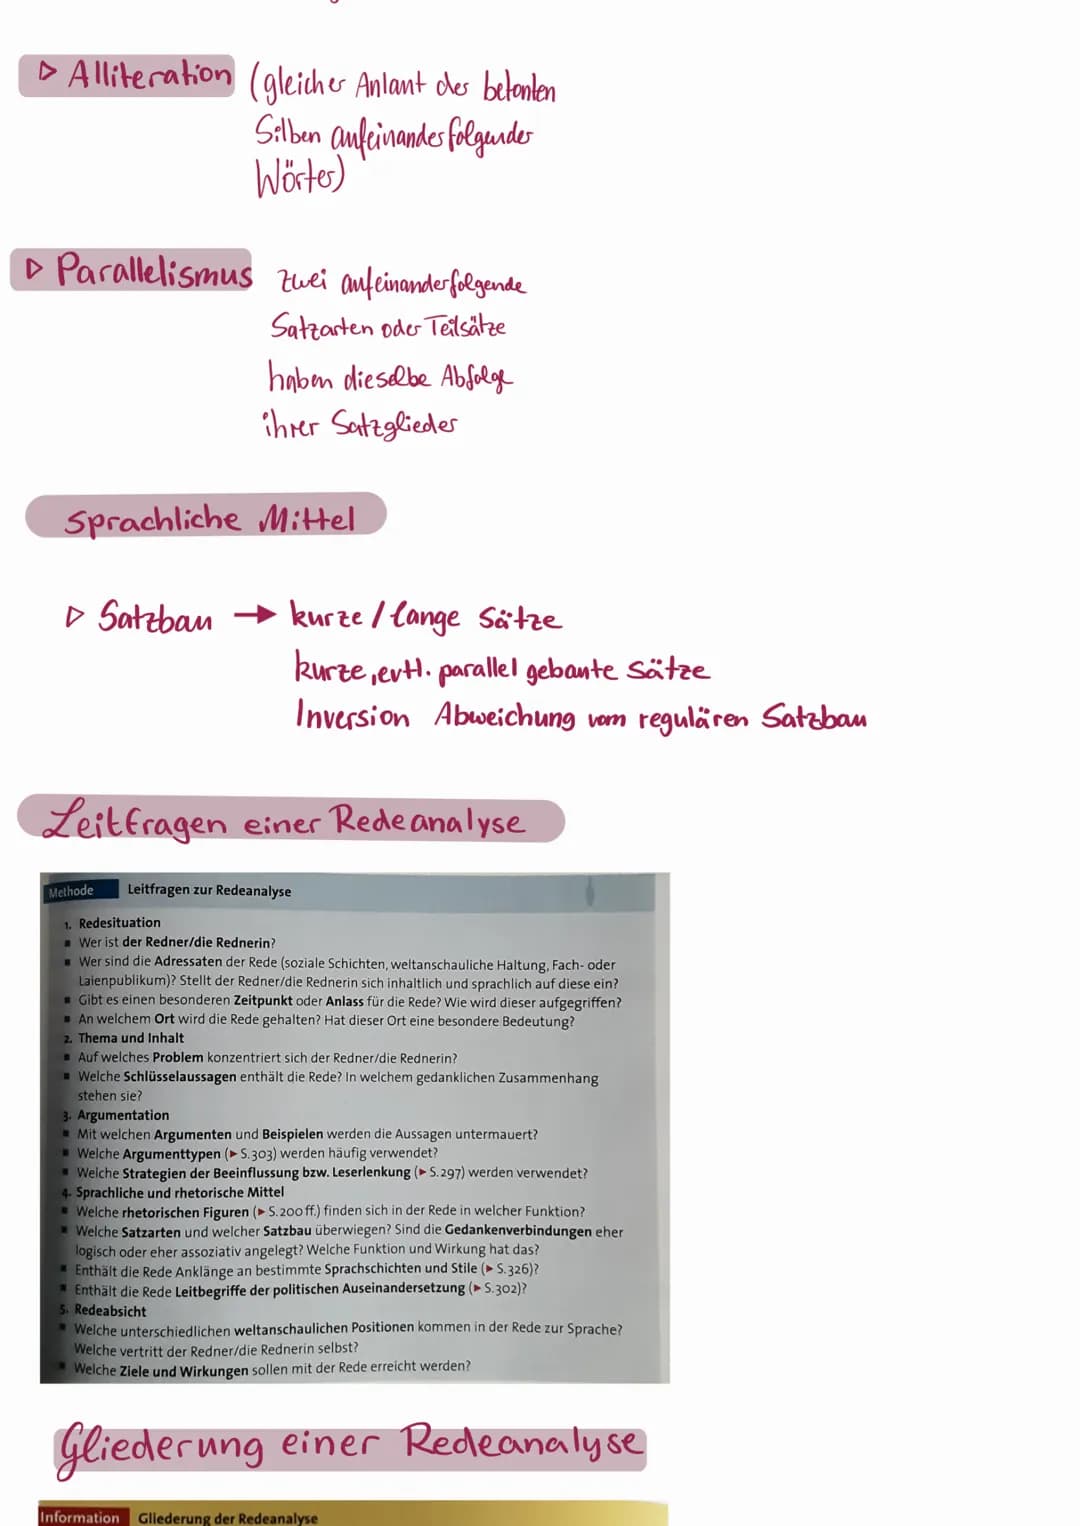 ▷ Alliteration (gleicher Anlaut der betonten
Silben aufeinanderfolgender
Wörter)
▷ Parallelismus zwei aufeinanderfolgende
Satzarten oder Teilsätze
haben dieselbe Abfolge
ihrer Satzglieder
Sprachliche Mittel
▷ Satzbau → kurze / lange Sätze
kurze, evtl. parallel gebaute Sätze
Inversion Abweichung vom regulären Satzbau
Leitfragen einer Redeanalyse
Methode Leitfragen zur Redeanalyse
1. Redesituation
▪ Wer ist der Redner/die Rednerin?
▪ Wer sind die Adressaten der Rede (soziale Schichten, weltanschauliche Haltung, Fach- oder
Laienpublikum)? Stellt der Redner/die Rednerin sich inhaltlich und sprachlich auf diese ein?
▪ Gibt es einen besonderen Zeitpunkt oder Anlass für die Rede? Wie wird dieser aufgegriffen?
▪ An welchem Ort wird die Rede gehalten? Hat dieser Ort eine besondere Bedeutung?
2. Thema und Inhalt
▪ Auf welches Problem konzentriert sich der Redner/die Rednerin?
▪ Welche Schlüsselaussagen enthält die Rede? In welchem gedanklichen Zusammenhang
stehen sie?
3. Argumentation
▪ Mit welchen Argumenten und Beispielen werden die Aussagen untermauert?
▪ Welche Argumenttypen (▸ S. 303) werden häufig verwendet?
▪ Welche Strategien der Beeinflussung bzw. Leserlenkung (▸ S. 297) werden verwendet?
4. Sprachliche und rhetorische Mittel
▪ Welche rhetorischen Figuren (▸ S. 200 ff.) finden sich in der Rede in welcher Funktion?
▪ Welche Satzarten und welcher Satzbau überwiegen? Sind die Gedankenverbindungen eher
logisch oder eher assoziativ angelegt? Welche Funktion und Wirkung hat das?
▪ Enthält die Rede Anklänge an bestimmte Sprachschichten und Stile (▸ S. 326)?
▪ Enthält die Rede Leitbegriffe der politischen Auseinandersetzung (▸ S. 302)?
5. Redeabsicht
▪ Welche unterschiedlichen weltanschaulichen Positionen kommen in der Rede zur Sprache?
Welche vertritt der Redner/die Rednerin selbst?
▪ Welche Ziele und Wirkungen sollen mit der Rede erreicht werden?
Gliederung einer Redeanalyse
Information Gliederung der Redeanalyse